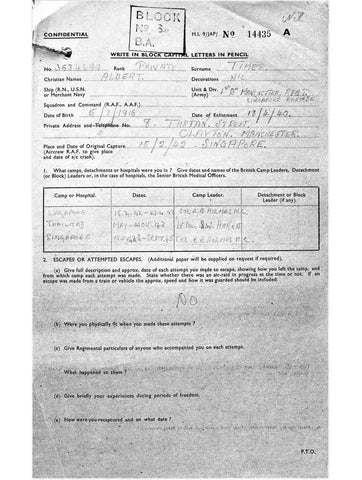 BLOCK
No 3
B.A.
Nil
CONFIDENTIAL
M.I. 9/JAP/ No 14435 A
WRITE IN BLOCK CAPITAL LETTERS IN PENCIL
No. Rank PRIVATE Surname TIMES
Christian Names ALBERT. Decorations NIL
Ship (R.N., U.S.N. or Merchant Navy) Unit & Div. (Army) 1st Bn MANCHESTER
Squadron and Command (R.A.F., A.A.F.)
Date of Birth 1916 Date of Enlistment
Private Address and Telephone No. STREET
CLAYTON, MANCHESTER.
Place and Date of Original Capture 15/2/42 SINGAPORE.
(Aircrew R.A.F. to give place and date of a/c crash).
1. What camps, detachments or hospitals were you in? Give dates and names of the British Camp Leaders, Detachment (or Block) Leaders or, in the case of hospitals, the Senior British Medical Officers.
Camp or Hospital. Dates. Camp Leader. Detachment or Block Leader (if any).
SINGAPORE
THAILAND MAY-NOV 42
SINGAPORE
2. ESCAPES OR ATTEMPTED ESCAPES. (Additional paper will be supplied on request if required).
(a) Give full description and approx. date of each attempt you made to escape, showing how you left the camp, and from which camp each attempt was made. State whether there was an air-raid in progress at the time or not. If an escape was made from a train or vehicle the approx. speed and how it was guarded should be included.
NO
(b) Were you physically fit when you made these attempts?
(c) Give Regimental particulars of anyone who accompanied you on each attempt.
What happened to them?
(d) Give briefly your experiences during periods of freedom.
(e) How were you recaptured and on what date?
P.T.O.